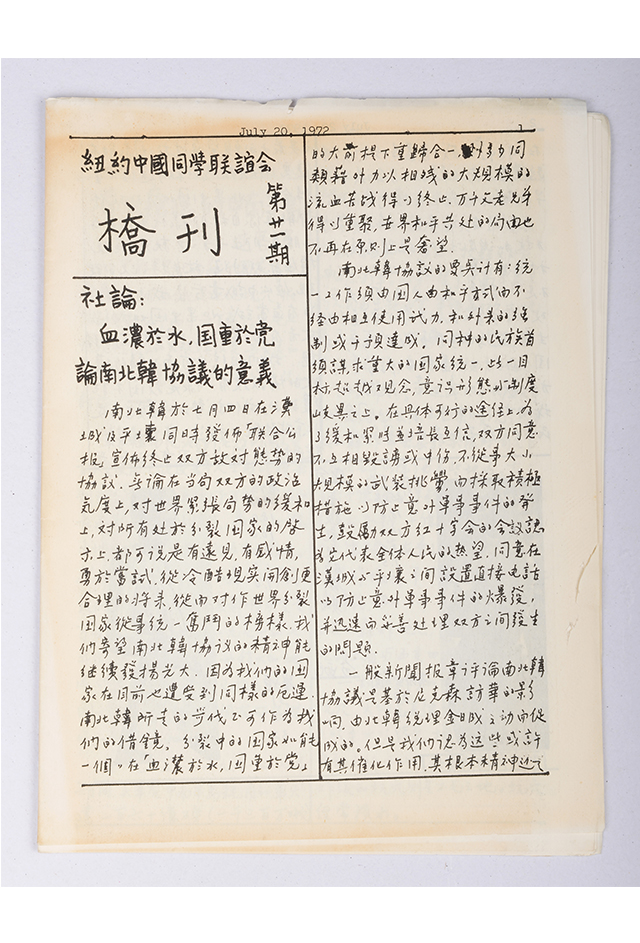 July 20, 1972
1
紐約中國同学联誼会
橋刊
第廿一期
社論:
血濃於水,国重於党
論南北韓協議的意義
南北韓於七月四日在漢
城及平壤同時發佈「联合公
报」宣佈終止双方敌对態势的
協议.無論在当局双方的政治
気度上,对世界緊張局势的缓和
上,对所有处於分裂国家的啓
示上,都可说是有遠見,有感情,
勇於嘗試,從冷酷現实间創更
合理的将来,從而对作世界分裂
国家從事統一奮鬥的榜樣.我
们希望南北韓協议的精神能
继續發揚光大.因為我们的国
家在目前也遭受到同樣的厄運.
南北韓所走的步伐正可作為我
们的借鏡.分裂中的国家如能
一個個在「血濃於水,国重於党」
的大前提下重歸合一,
類藉外力以相残的大規模的
流血苦战得以終止.万千父老兄弟
得以重聚,世界和平共处的局面也
不再在原则上是奢望.
南北韓協议的要点計有:統
一工作須由国人由和平方式而不
経由相互使用武力,和外来的强
制或干预達成,同种的民族首
須謀求重大的国家統一,此一目
标超越观念,意识形態和制度
歧異之上.在具体可行的途径上,為
了缓和緊張並培長互信,双方同意
不互相毀謗或中伤.不從事大小
規模的武装挑釁而採取積極
措施以防止意外軍事事件的發
生,鼓勵双方红十字会的会议認
為它代表全体人民的熱望,同意在
漢城與平壤之间設置直接电話
以防止意外軍事事件的爆發,
並迅速而妥善处理双方之间發生
的問題.
一般新聞报章评論南北韓
協議是基於尼克森訪華的影
响,由北韓總理金日成主动而促
成的.但是我们認為这些或許
有其催化作用,其根本精神还是